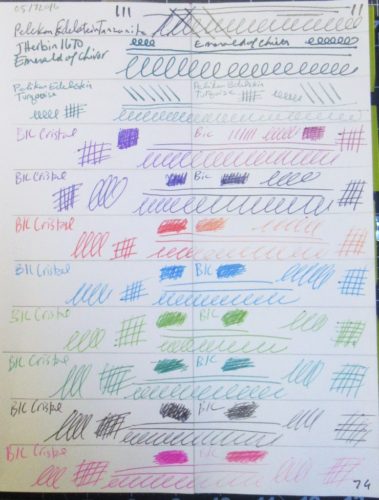 Pelikan Edelstein Tanzanite
J Herbin 1670
Emerald of Chivor
Emerald of Chivor
Pelikan Edelstein
Turquoise
Pelikan Edelstein
Turquoise
BIC Cristal
Bic
BIC Cristal
Bic
BIC Cristal
BIC Cristal
BIC
BIC Cristal
BIC
BIC Cristal
BIC
BIC Cristal
BIC
BIC Cristal
74